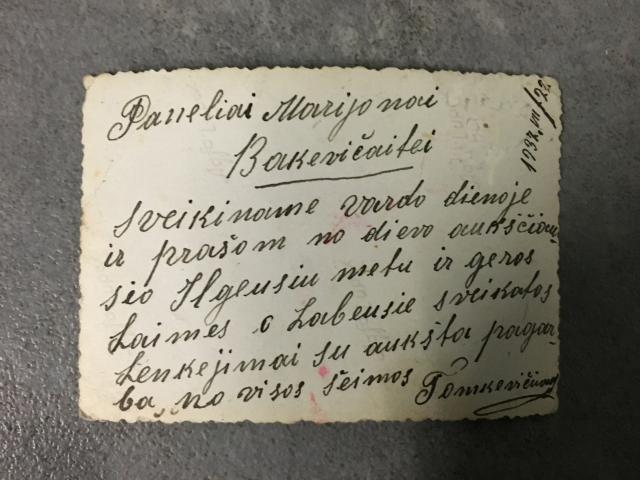 Paneliai Marijonai
Bakevičaitei
1937.VII/22
Sveikiname vardo dienoje
ir prašom no dievo aukščiau
sio Ilgeusiu metu ir geros
Laimes o Labeusie sveikatos
Lenkejimai su aukšta pagar-
ba no visos šeimos